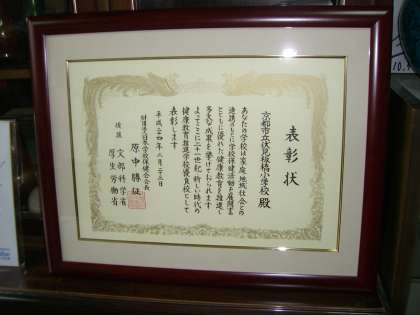 表彰状
京都市立伏見板橋小学校 殿
あなたの学校は家庭、地域社会との
連携のもとに学校保健活動を展開する
とともに優れた健康教育を推進し
多大な成果を挙げておられます
よってここに二十一世紀・新しい時代の
健康教育推進学校優良校として
表彰します
平成二十四年二月二十三日
財団法人日本学校保健会会長
原中勝征
後援
文部科学省
厚生労働省